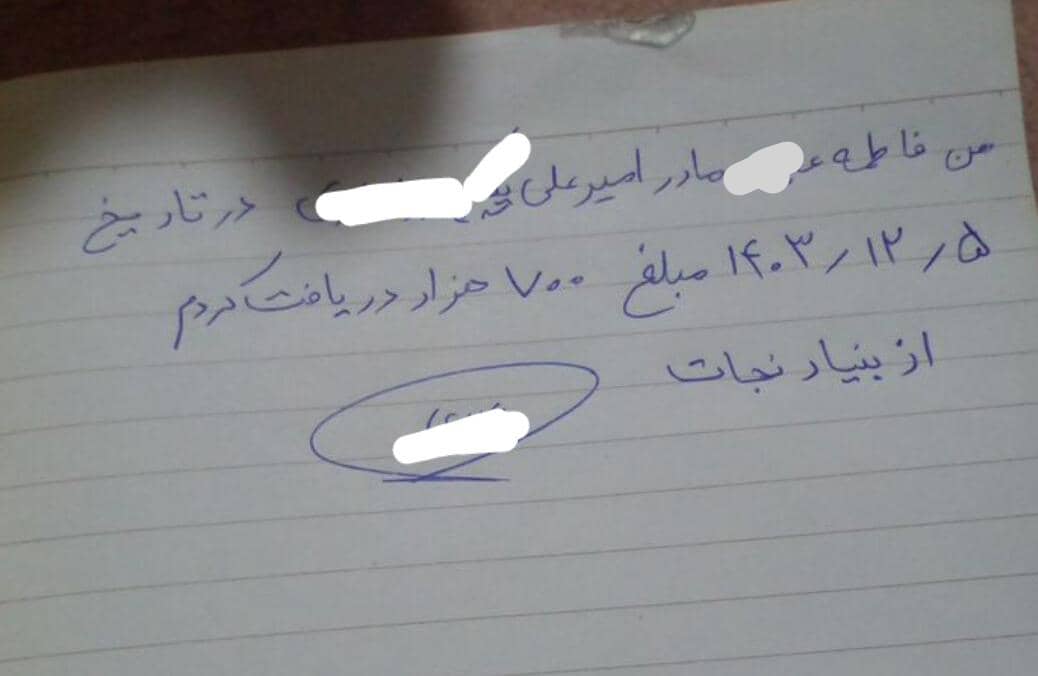 من فاطمه مادر امیرعلی در تاریخ
۱۴۰۳/۱۲/۵ مبلغ ۷۰۰ هزار دریافت کردم
از بنیاد نجات